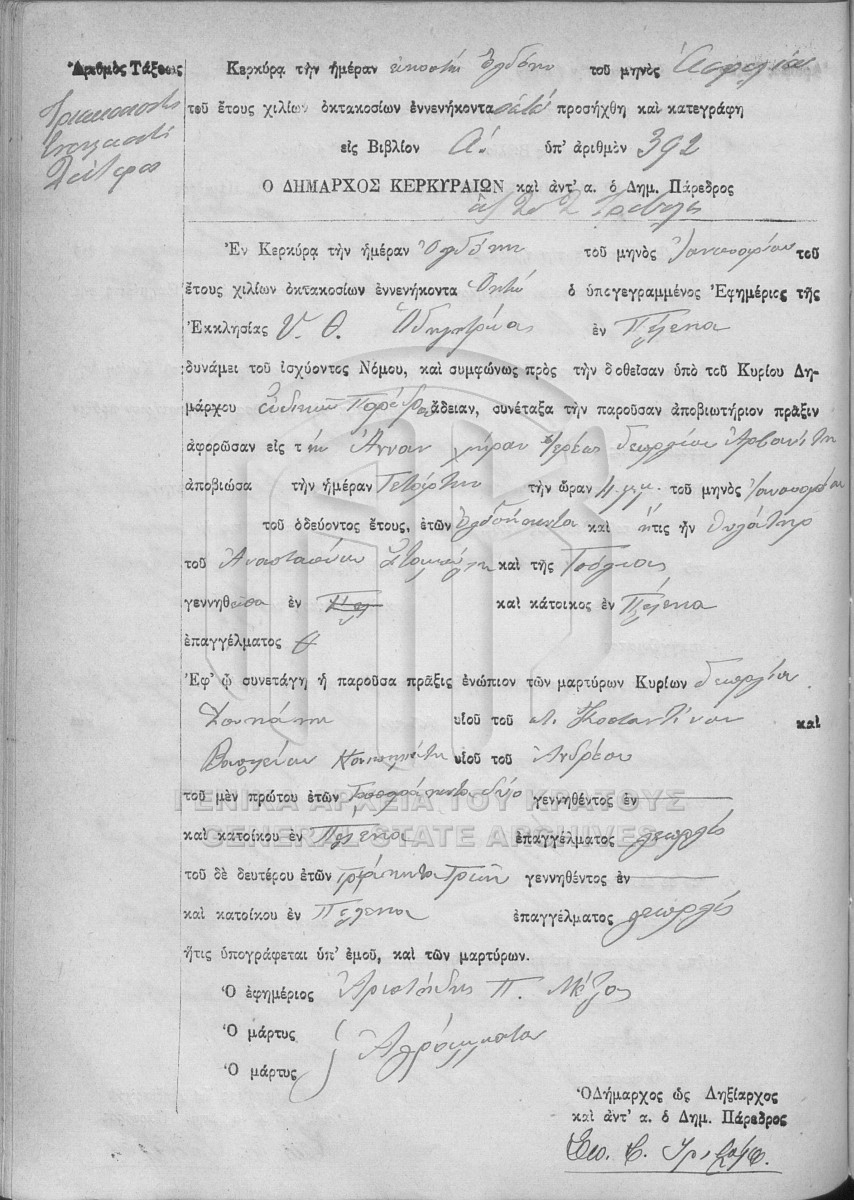 Ἀριθμὸς Τάξεως
Τριακοσιοστὴ
Ἐνενηκοστὴ
Δεύτερα
Κερκύρᾳ τὴν ἡμέραν εἰκοστὴ ὀγδόη τοῦ μηνὸς Ἀπριλίου
τοῦ ἔτους χιλίων ὀκτακοσίων ἐννενήκοντα ὀκτώ προσήχθη καὶ κατεγράφη
εἰς Βιβλίον Α. ὑπ' ἀριθμὸν 392
Ὁ ΔΗΜΑΡΧΟΣ ΚΕΡΚΥΡΑΙΩΝ καὶ ἀντ' α. ὁ Δημ. Πάρεδρος
Ἐν Κερκύρᾳ τὴν ἡμέραν Ὀγδόην τοῦ μηνὸς Ἰανουαρίου τοῦ
ἔτους χιλίων ὀκτακοσίων ἐννενήκοντα Ὀκτώ ὁ ὑπογεγραμμένος Ἐφημέριος τῆς
Ἐκκλησίας Υ. Θ. Ὁδηγητρίας ἐν Πέλεκα
δυνάμει τοῦ ἰσχύοντος Νόμου, καὶ συμφώνως πρὸς τὴν δοθεῖσαν ὑπὸ τοῦ Κυρίου Δη-
μάρχου εἰδικοῦ Παρέδρου ἄδειαν, συνέταξα τὴν παροῦσαν ἀποβιωτήριον πρᾶξιν
ἀφορῶσαν εἰς τὴν Ἄνναν χήραν Ἱερέως Γεωργίου Ἀρβανίτη
ἀποβιώσα τὴν ἡμέραν Τετάρτην τὴν ὥραν 4 μ.μ. τοῦ μηνὸς Ἰανουαρίου
τοῦ ὁδεύοντος ἔτους, ἐτῶν Ὀγδοήκοντα καὶ ἥτις ἦν θυγάτηρ
τοῦ Ἀναστασίου καὶ τῆς
γεννηθεῖσα ἐν Πελ καὶ κάτοικος ἐν Πέλεκα
ἐπαγγέλματος
Ἐφ' ᾧ συνετάγη ἡ παροῦσα πρᾶξις ἐνώπιον τῶν μαρτύρων Κυρίων Γεωργίου
υἱοῦ τοῦ Κοσταντίνου καὶ
Βασιλείου υἱοῦ τοῦ Ἀνδρέου
τοῦ μὲν πρώτου ἐτῶν Τεσσαράκοντα δύο γεννηθέντος ἐν
ΓΕΝΙΚΑ ΑΡΧΕΙΑ ΤΟΥ ΚΡΑΤΟΥΣ
καὶ κατοίκου ἐν Πέλεκα ἐπαγγέλματος γεωργός
GENERAL STATE ARCHIVES
τοῦ δὲ δευτέρου ἐτῶν τριάκοντα τριῶν γεννηθέντος ἐν
καὶ κατοίκου ἐν Πέλεκα ἐπαγγέλματος γεωργός
ἥτις ὑπογράφεται ὑπ' ἐμοῦ, καὶ τῶν μαρτύρων.
Ὁ ἐφημέριος Ἀριστείδης Π.
Ὁ μάρτυς Ἀγράμματοι
Ὁ μάρτυς
Ὁ Δήμαρχος ὡς Ληξίαρχος
καὶ ἀντ' α. ὁ Δημ. Πάρεδρος